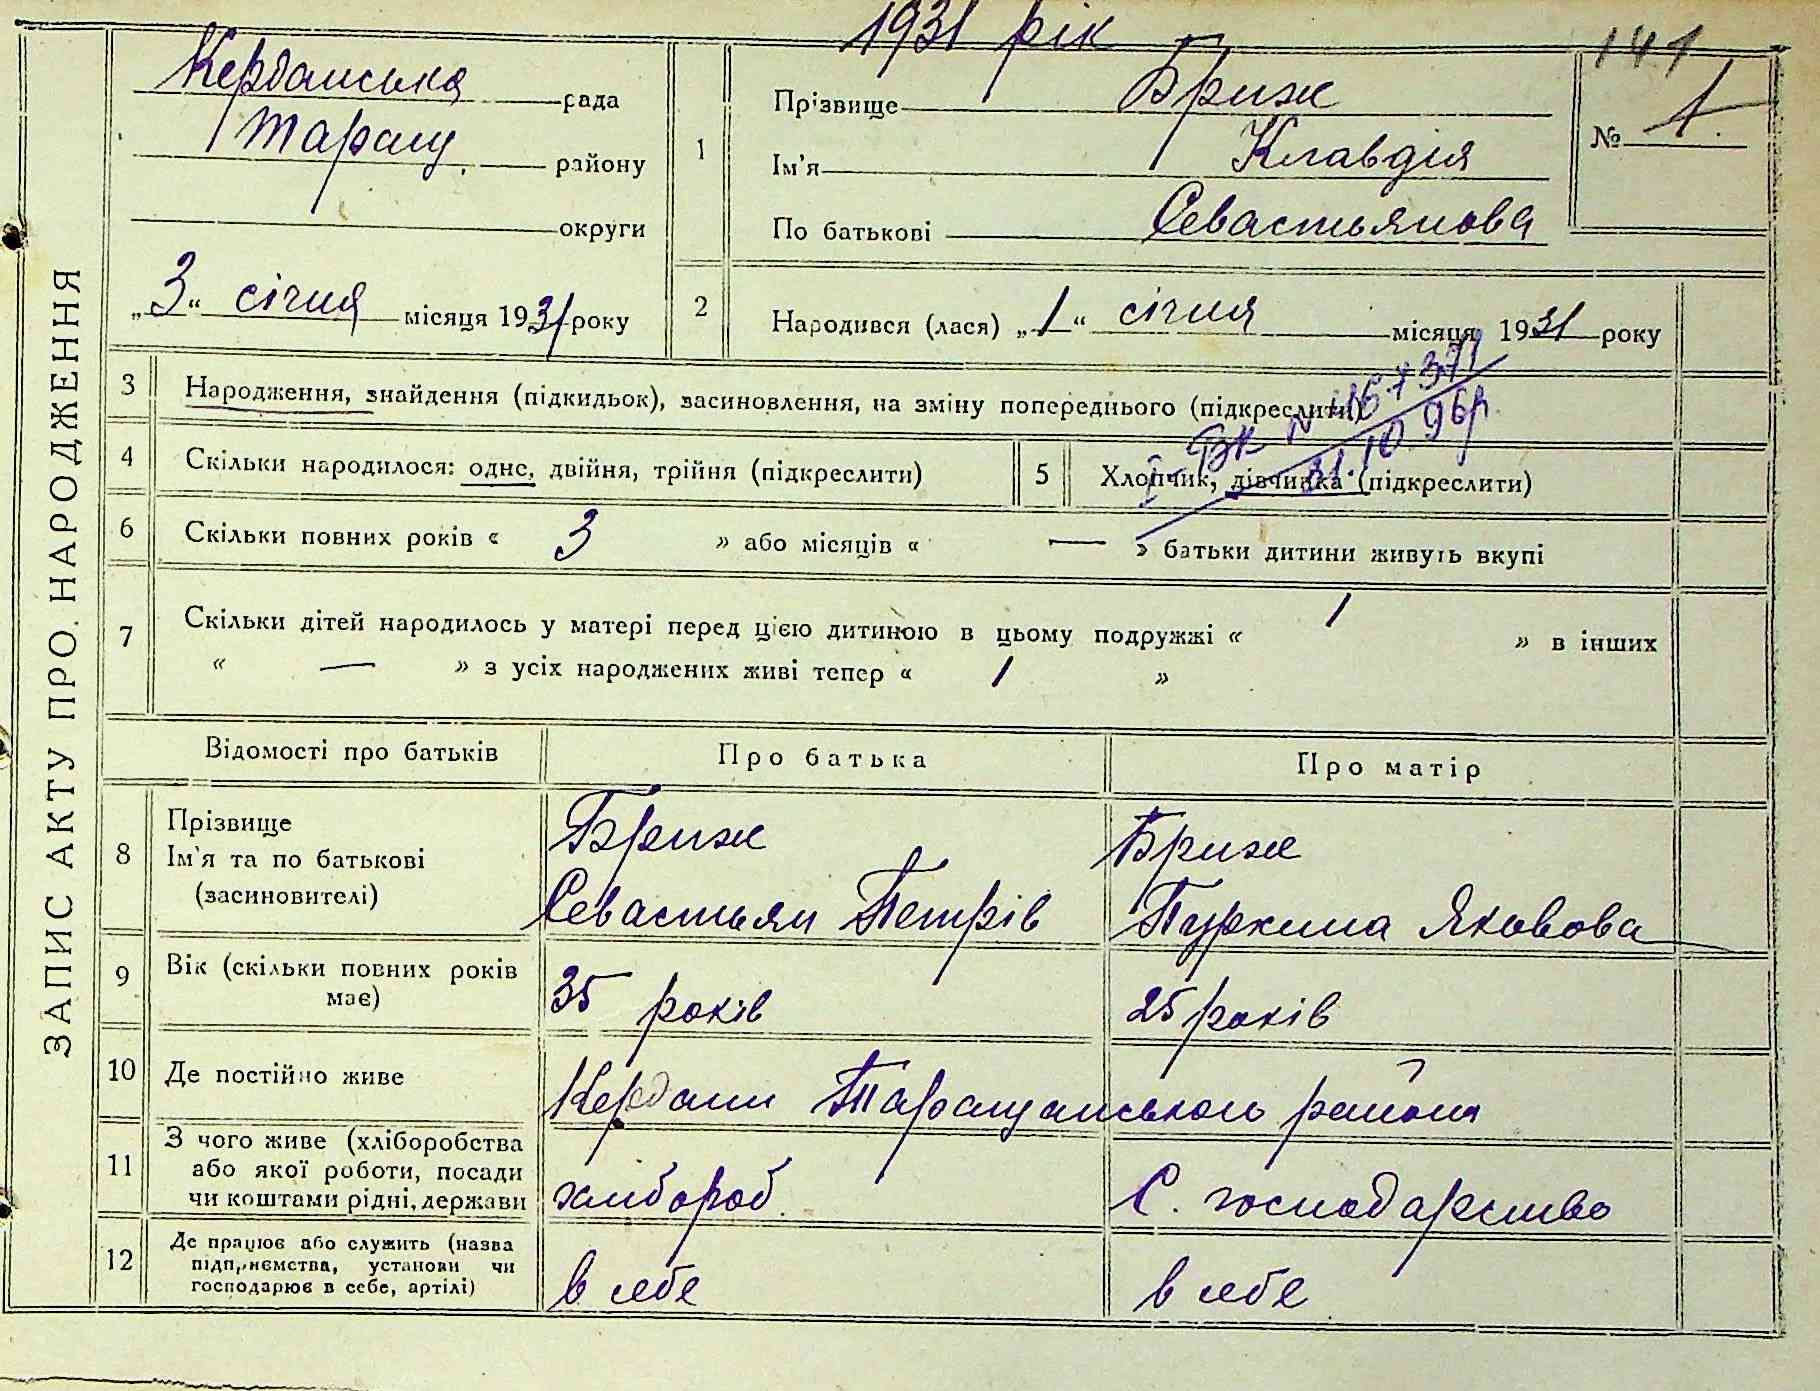 1931 рік
141
Керданська рада
Таращ. району
округи
„3“ січня місяця 1931 року
ЗАПИС АКТУ ПРО НАРОДЖЕННЯ
1 Прізвище Бриж
Ім'я Клавдія
По батькові Севастьянова
№ 1.
2 Народився (лася) „1“ січня місяця 1931 року
3 Народження, знайдення (підкидьок), засиновлення, на зміну попереднього (підкреслити)
4 Скільки народилося: одне, двійня, трійня (підкреслити)
5 Хлопчик, дівчинка (підкреслити)
31.10 96р.
6 Скільки повних років « 3 » або місяців « — » батьки дитини живуть вкупі
7 Скільки дітей народилось у матері перед цією дитиною в цьому подружжі « 1 » в інших
« — » з усіх народжених живі тепер « 1 »
Відомості про батьків Про батька Про матір
8 Прізвище Бриж Бриж
Ім'я та по батькові
(засиновителі) Севастьян Петрів Яковова
9 Вік (скільки повних років
має) 35 років 25 років
10 Де постійно живе Кердани Таращанського району
11 З чого живе (хліборобства
або якої роботи, посади
чи коштами рідні, держави хлібороб. С. господарство
12 Де працює або служить (назва
підприємства, установи чи
господарює в себе, артілі) в себе в себе